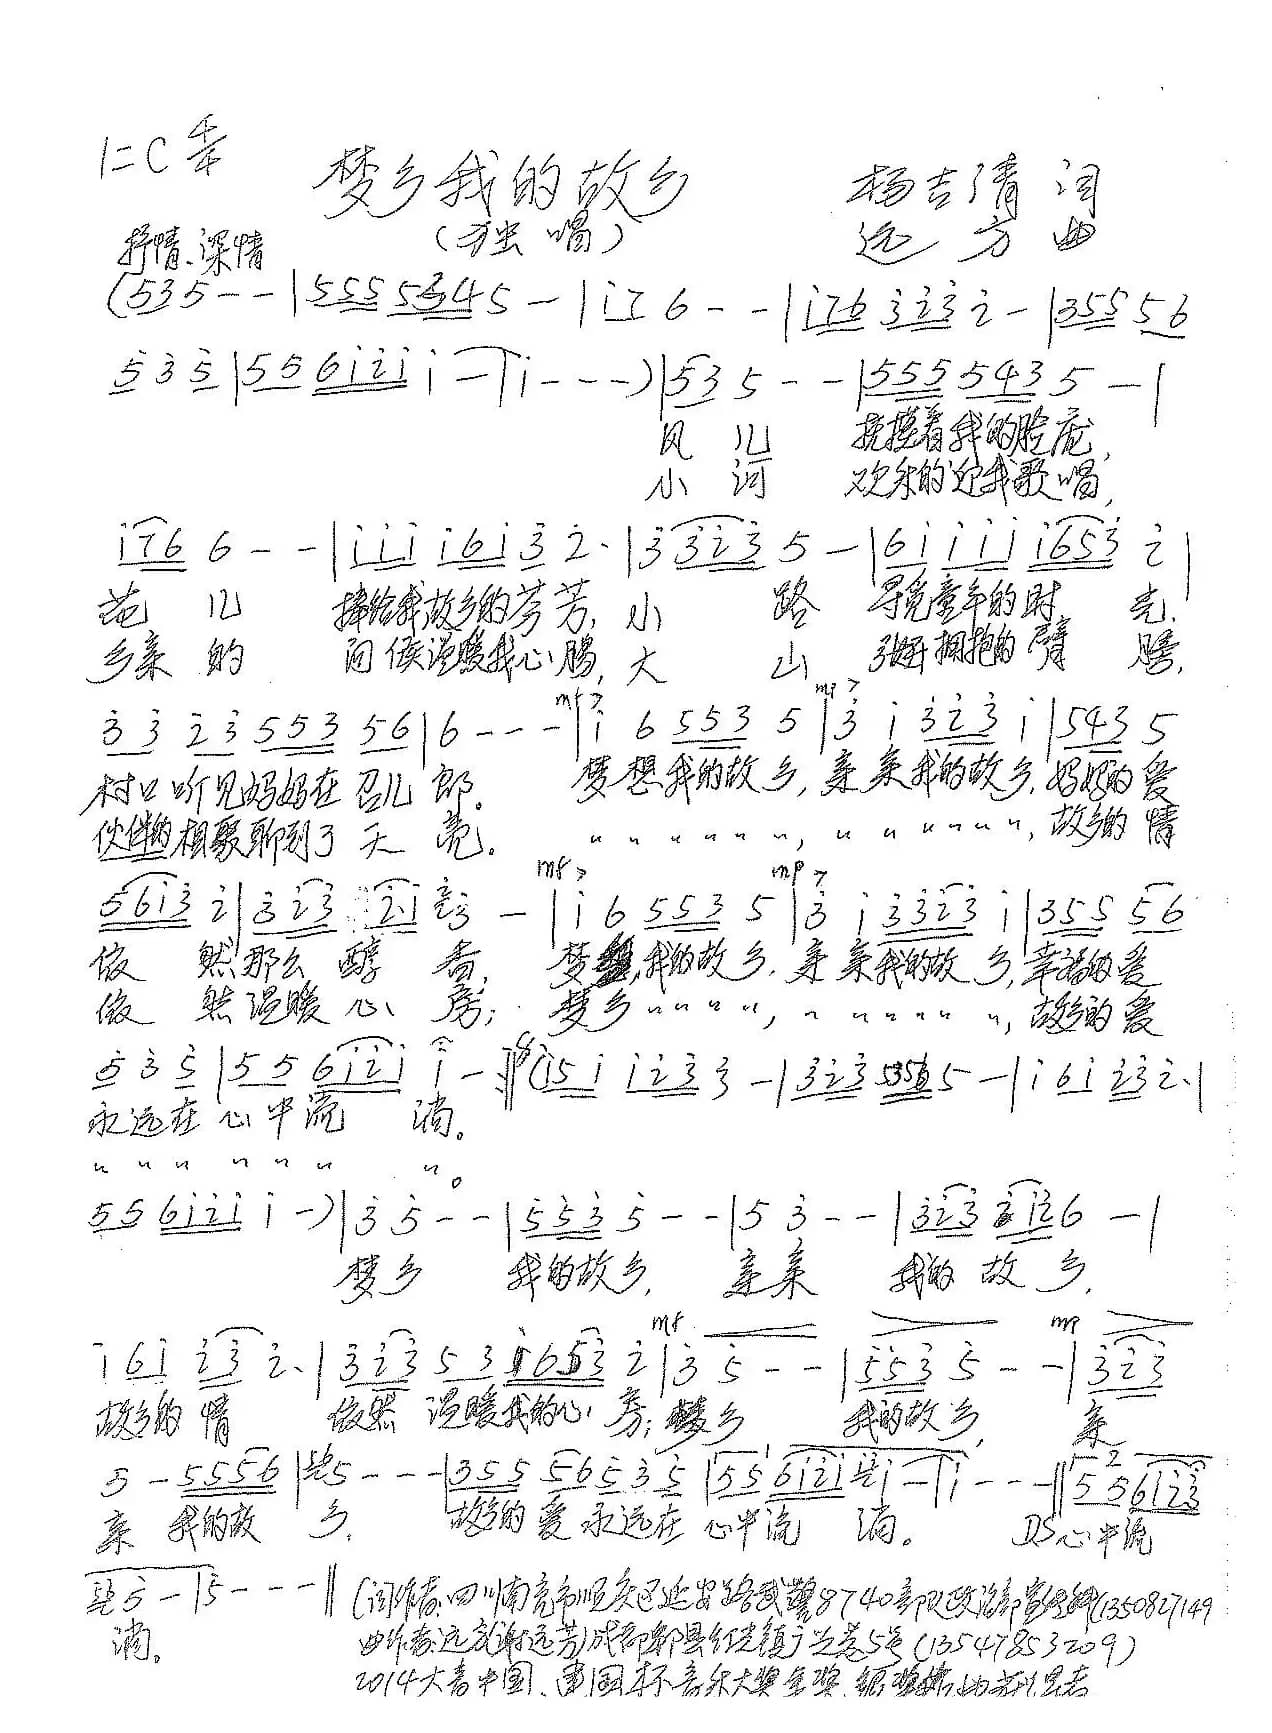 1=C 4/4
梦乡我的故乡
杨吉清 词
(独 唱)
远 方 曲
抒情、深情
(535 - - | 555 5345 - | i76 - - | i76 323 2 - | 355 56
535 | 55 6i2i i - | i - - - ) | 53 5 - - | 555 543 5 - |
风 儿 抚摸着我的脸庞,
小 河 欢乐的迎我歌唱,
i76 6 - - | iii i6i3 2· | 3 323 5 - | 6i iii i653 2 |
花 儿 捧给我故乡的芬芳, 小 路 寻觅童年的时 光.
乡亲的 问候温暖我心肠, 大 山 张开拥抱的臂 膀,
mf> mp>
3 3 23 553 56 | 6 - - - | i 6 553 5 | 3 i 323 i | 543 5
村口听见妈妈在召儿 郎。 梦想我的故乡, 亲亲我的故乡, 妈妈的爱
伙伴的相聚聊到了天 亮。 〃〃〃〃〃〃, 〃〃〃〃〃〃, 故乡的 情
mf> mp>
56i3 2 | 323 2·i 23 - | i 6 553 5 | 3 i 3323 i | 355 56
依 然那么 醇 香, 梦 我的故乡. 亲亲我的故乡, 幸福的爱
依 然温暖 心 房; 梦乡〃〃〃〃, 〃〃〃〃〃〃, 故乡的爱
535 | 55 6i2i i - ‖ (i5i i23 3 - | 323 5356 5 - | i 6i 23 2· |
永远在心中流 淌。
〃〃〃 〃〃〃 〃。
55 6i2i i -) | 3 5 - - | 553 5 - - | 5 3 - - | 323 3i26 - |
梦乡 我的故乡, 亲亲 我的故乡,
mf mp
i 6i 23 2· | 323 53 i653 2 | 3 5 - - | 553 5 - - | 323
故乡的 情 依然 温暖我的心 房; 梦乡 我的故乡, 亲
5 - 5556 | 5 - - - | 355 56 535 | 55 6i2i i - | i - - - ‖ 55 6i23
亲 我的故 乡. 故乡的 爱 永远在 心中流 淌。 D.S 心中流
5 - | 5 - - - ‖ (词作者:四川南充市顺庆区延安路武警8740部队政治部 (1350827149
淌。 曲作者:远方(谢远芳)成都郫县红光镇广兰巷5号(13547853209)
2014大音中国、建国杯音乐大奖金奖